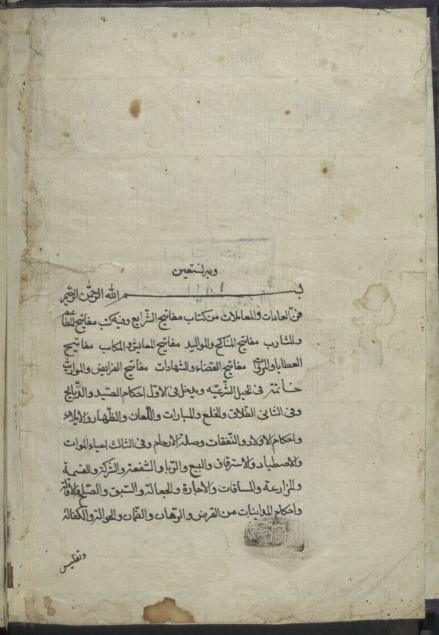 وبه نستعين
بسم الله الرحمن الرحيم
فن العادات والمعاملات من كتاب مفاتيح الشرايع وفيه كتب مفاتيح المطاعم
والمشارب مفاتيح المناكح والمواليد مفاتيح المعايش والمكاسب مفاتيح
العطايا والمروات مفاتيح القضاء والشهادات مفاتيح الفرايض والمواريث
خاتمة في الحيل الشرعيه ويدخل في الاول احكام الصيد والذبايح
وفي الثاني الطلاق والخلع والمبارات واللعان والظهار والايلاء
واحكام الاولاد والنفقات وصلة الارحام وفي الثالث احياء الموات
والاصطياد والاسترقاق والبيع والربا والشفعة والشركة والقسمة
والمزارعة والمساقات والاجارة والجعالة والسبق والصلح والاقالة
واحكام المداينات من القرض والرهان والضمان والحوالة والكفالة
وتفليس